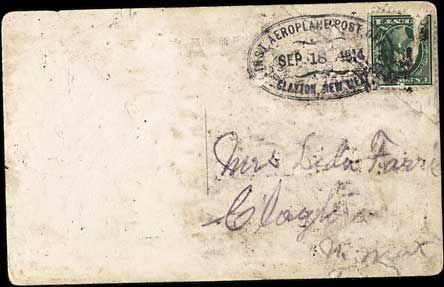 FIRST AEROPLANE POST
SEP 18 1914
CLAYTON, NEW MEX
Mrs Lida Farr
Clayton
N. Mex